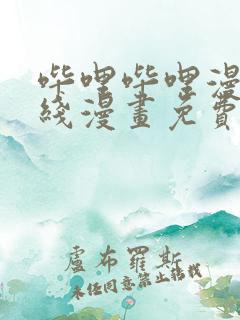 哔哩哔哩漫
綫漫畫免費
盧布羅斯
未经同意禁止转载